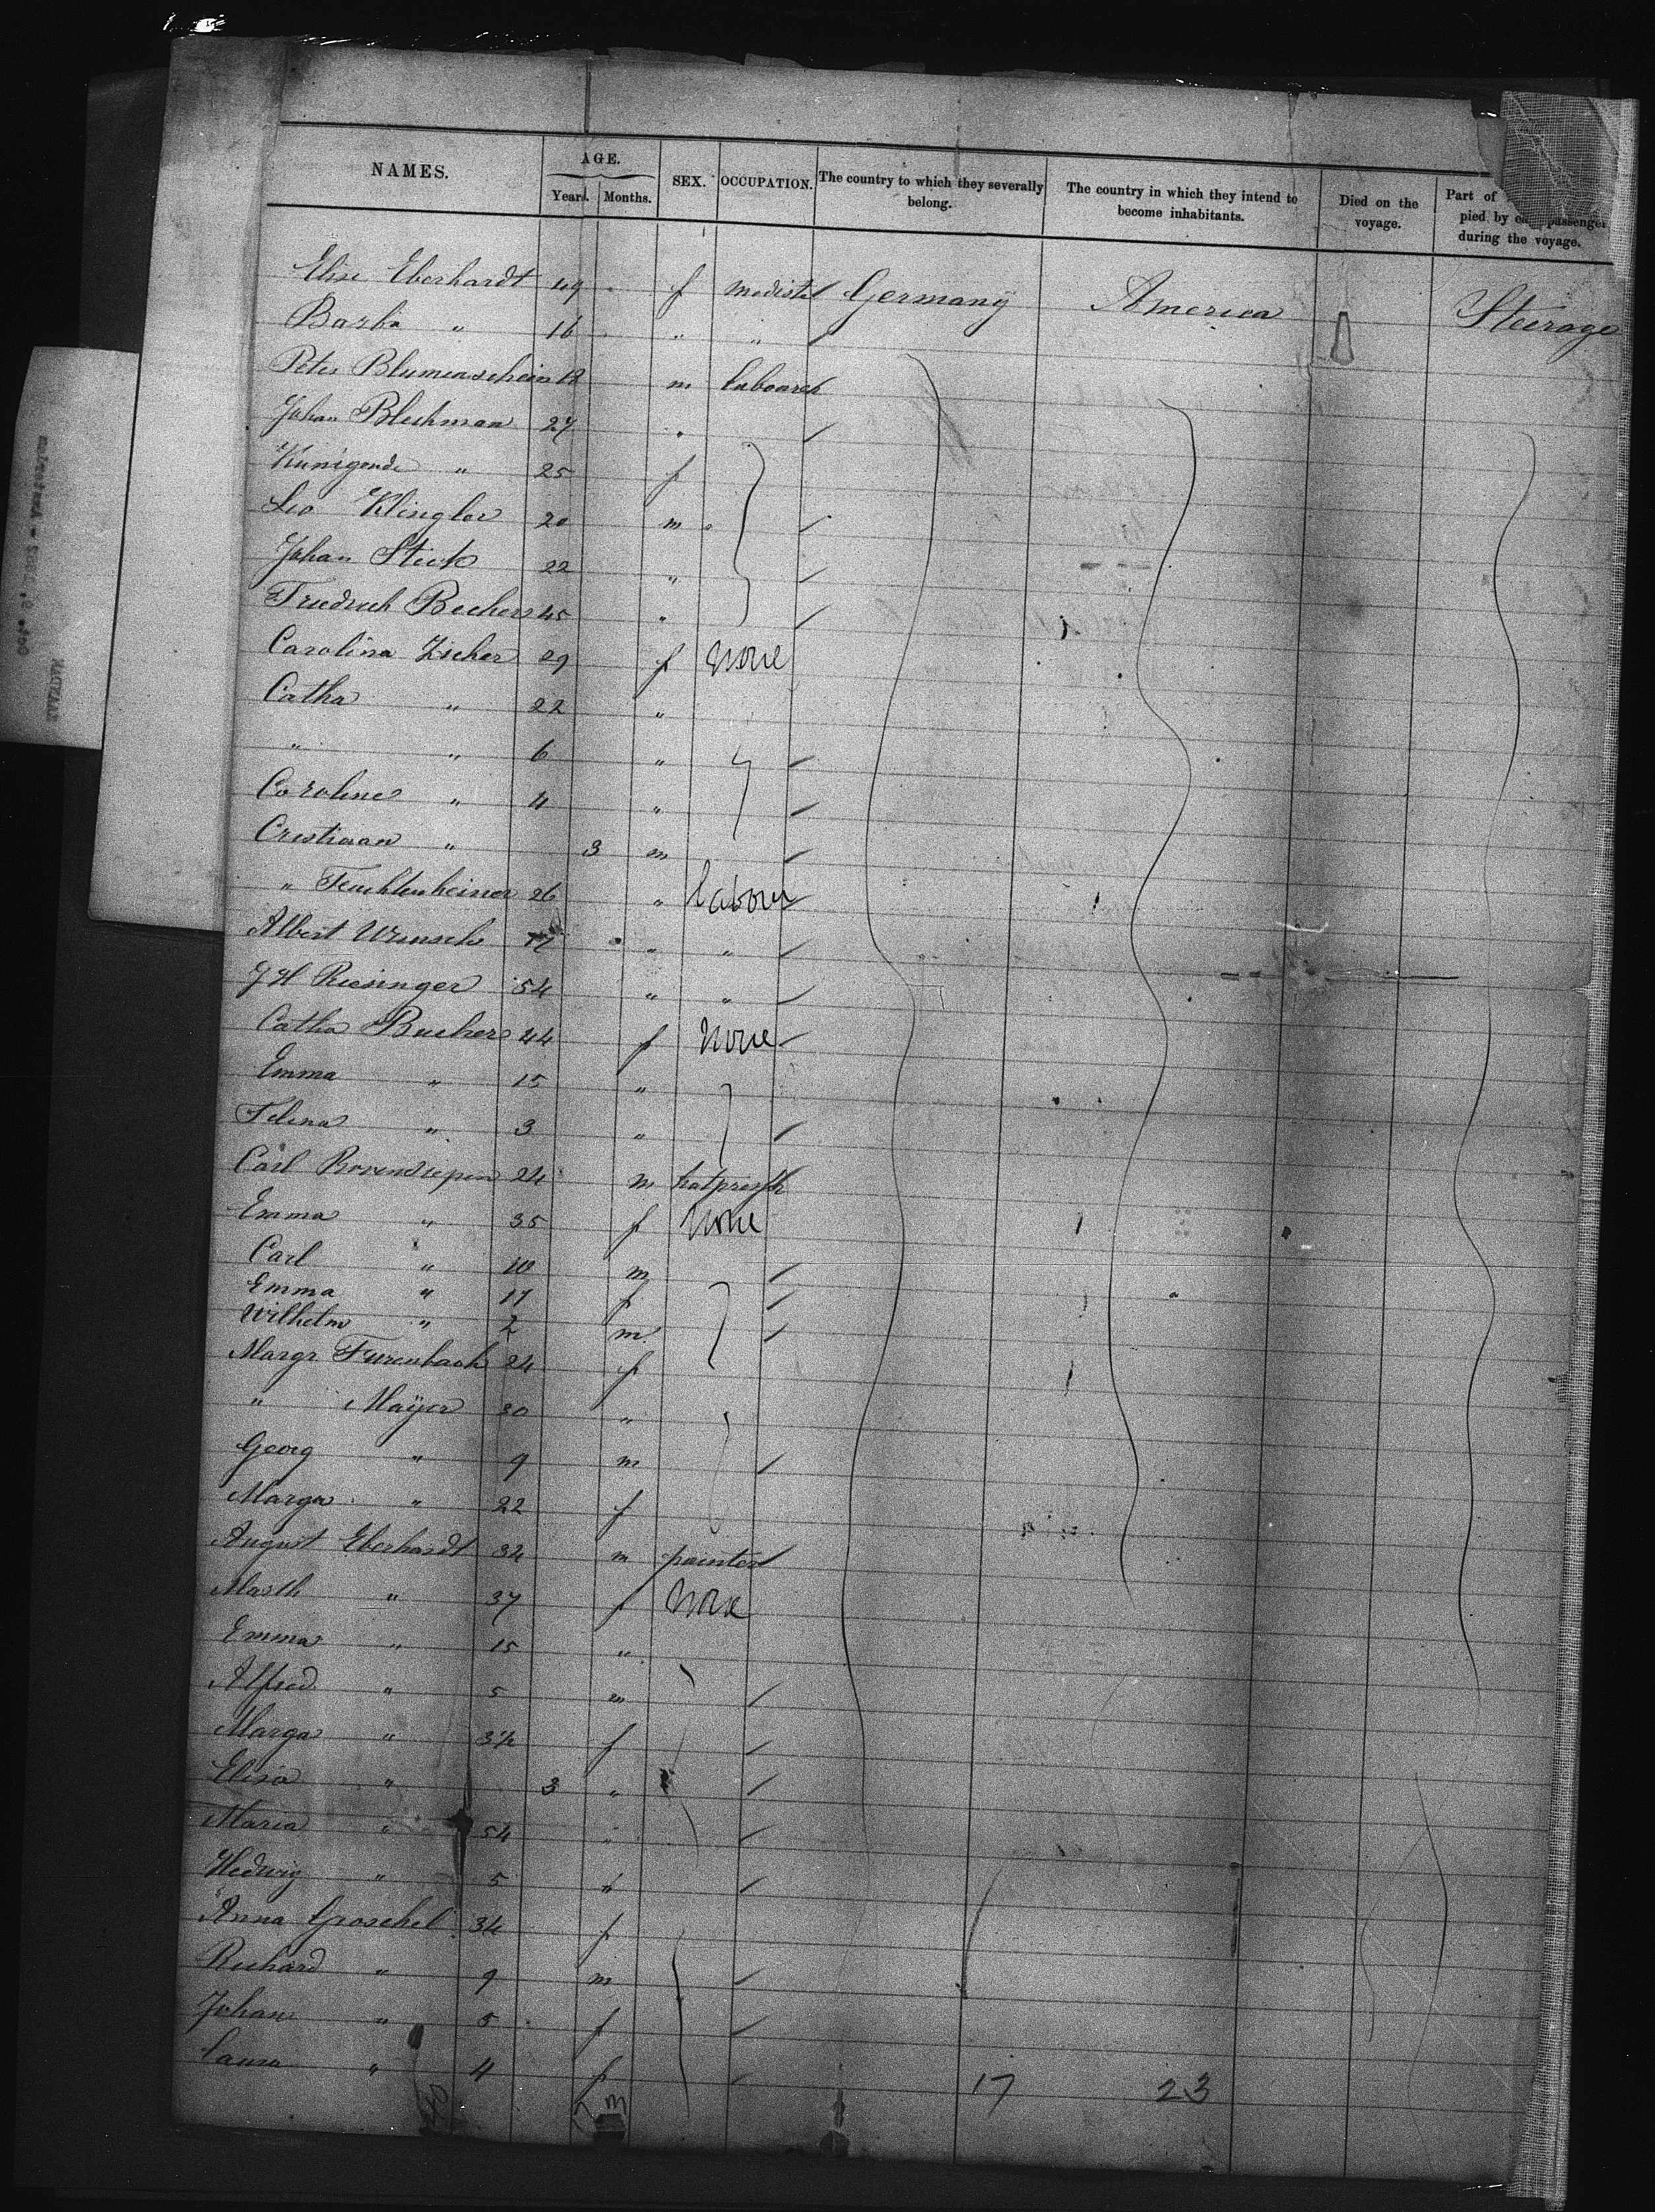 NAMES. AGE. SEX. OCCUPATION. The country to which they severally belong. The country in which they intend to become inhabitants. Died on the voyage. Part of pied by passenger during the voyage.
Years. Months.
Elise Eberhardt 49 f modiste Germany America Steerage
Barba " 16 " "
Peter Blumenschein 18 m labourer
Johan Blechman 27 "
Kunigunde " 25 f
Leo Klingler 20 m
Johan Steck 22 "
Friedrich Becker 45 "
Carolina Zscher 29 f None
Catha " 22 "
" " 6 "
Caroline " 4 "
Cristiaan " 3 m
" Feuchtenbeiner 26 " labour
Albert Wunsch " "
J H Riesinger 54 " "
Catha Bucher 44 f None
Emma " 15 "
Selina " 3 "
Carl 24 m
Emma " 35 f None
Carl " 10 m
Emma " 17 f
Wilhelm " 2 m
Margr Furenbach 24 f
" Mayer 30 "
Georg " 9 m
Marga " 22 f
August Eberhardt 32 m painter
Marth " 37 f None
Emma " 15 "
Alfred " 5 m
Marga " f
Elisa " 3 "
Maria " 54 "
Hedwig " 5 "
Anna Groschel 34 f
Richard " 9 m
Johan " 5 f
Laura " 4 f
17 23